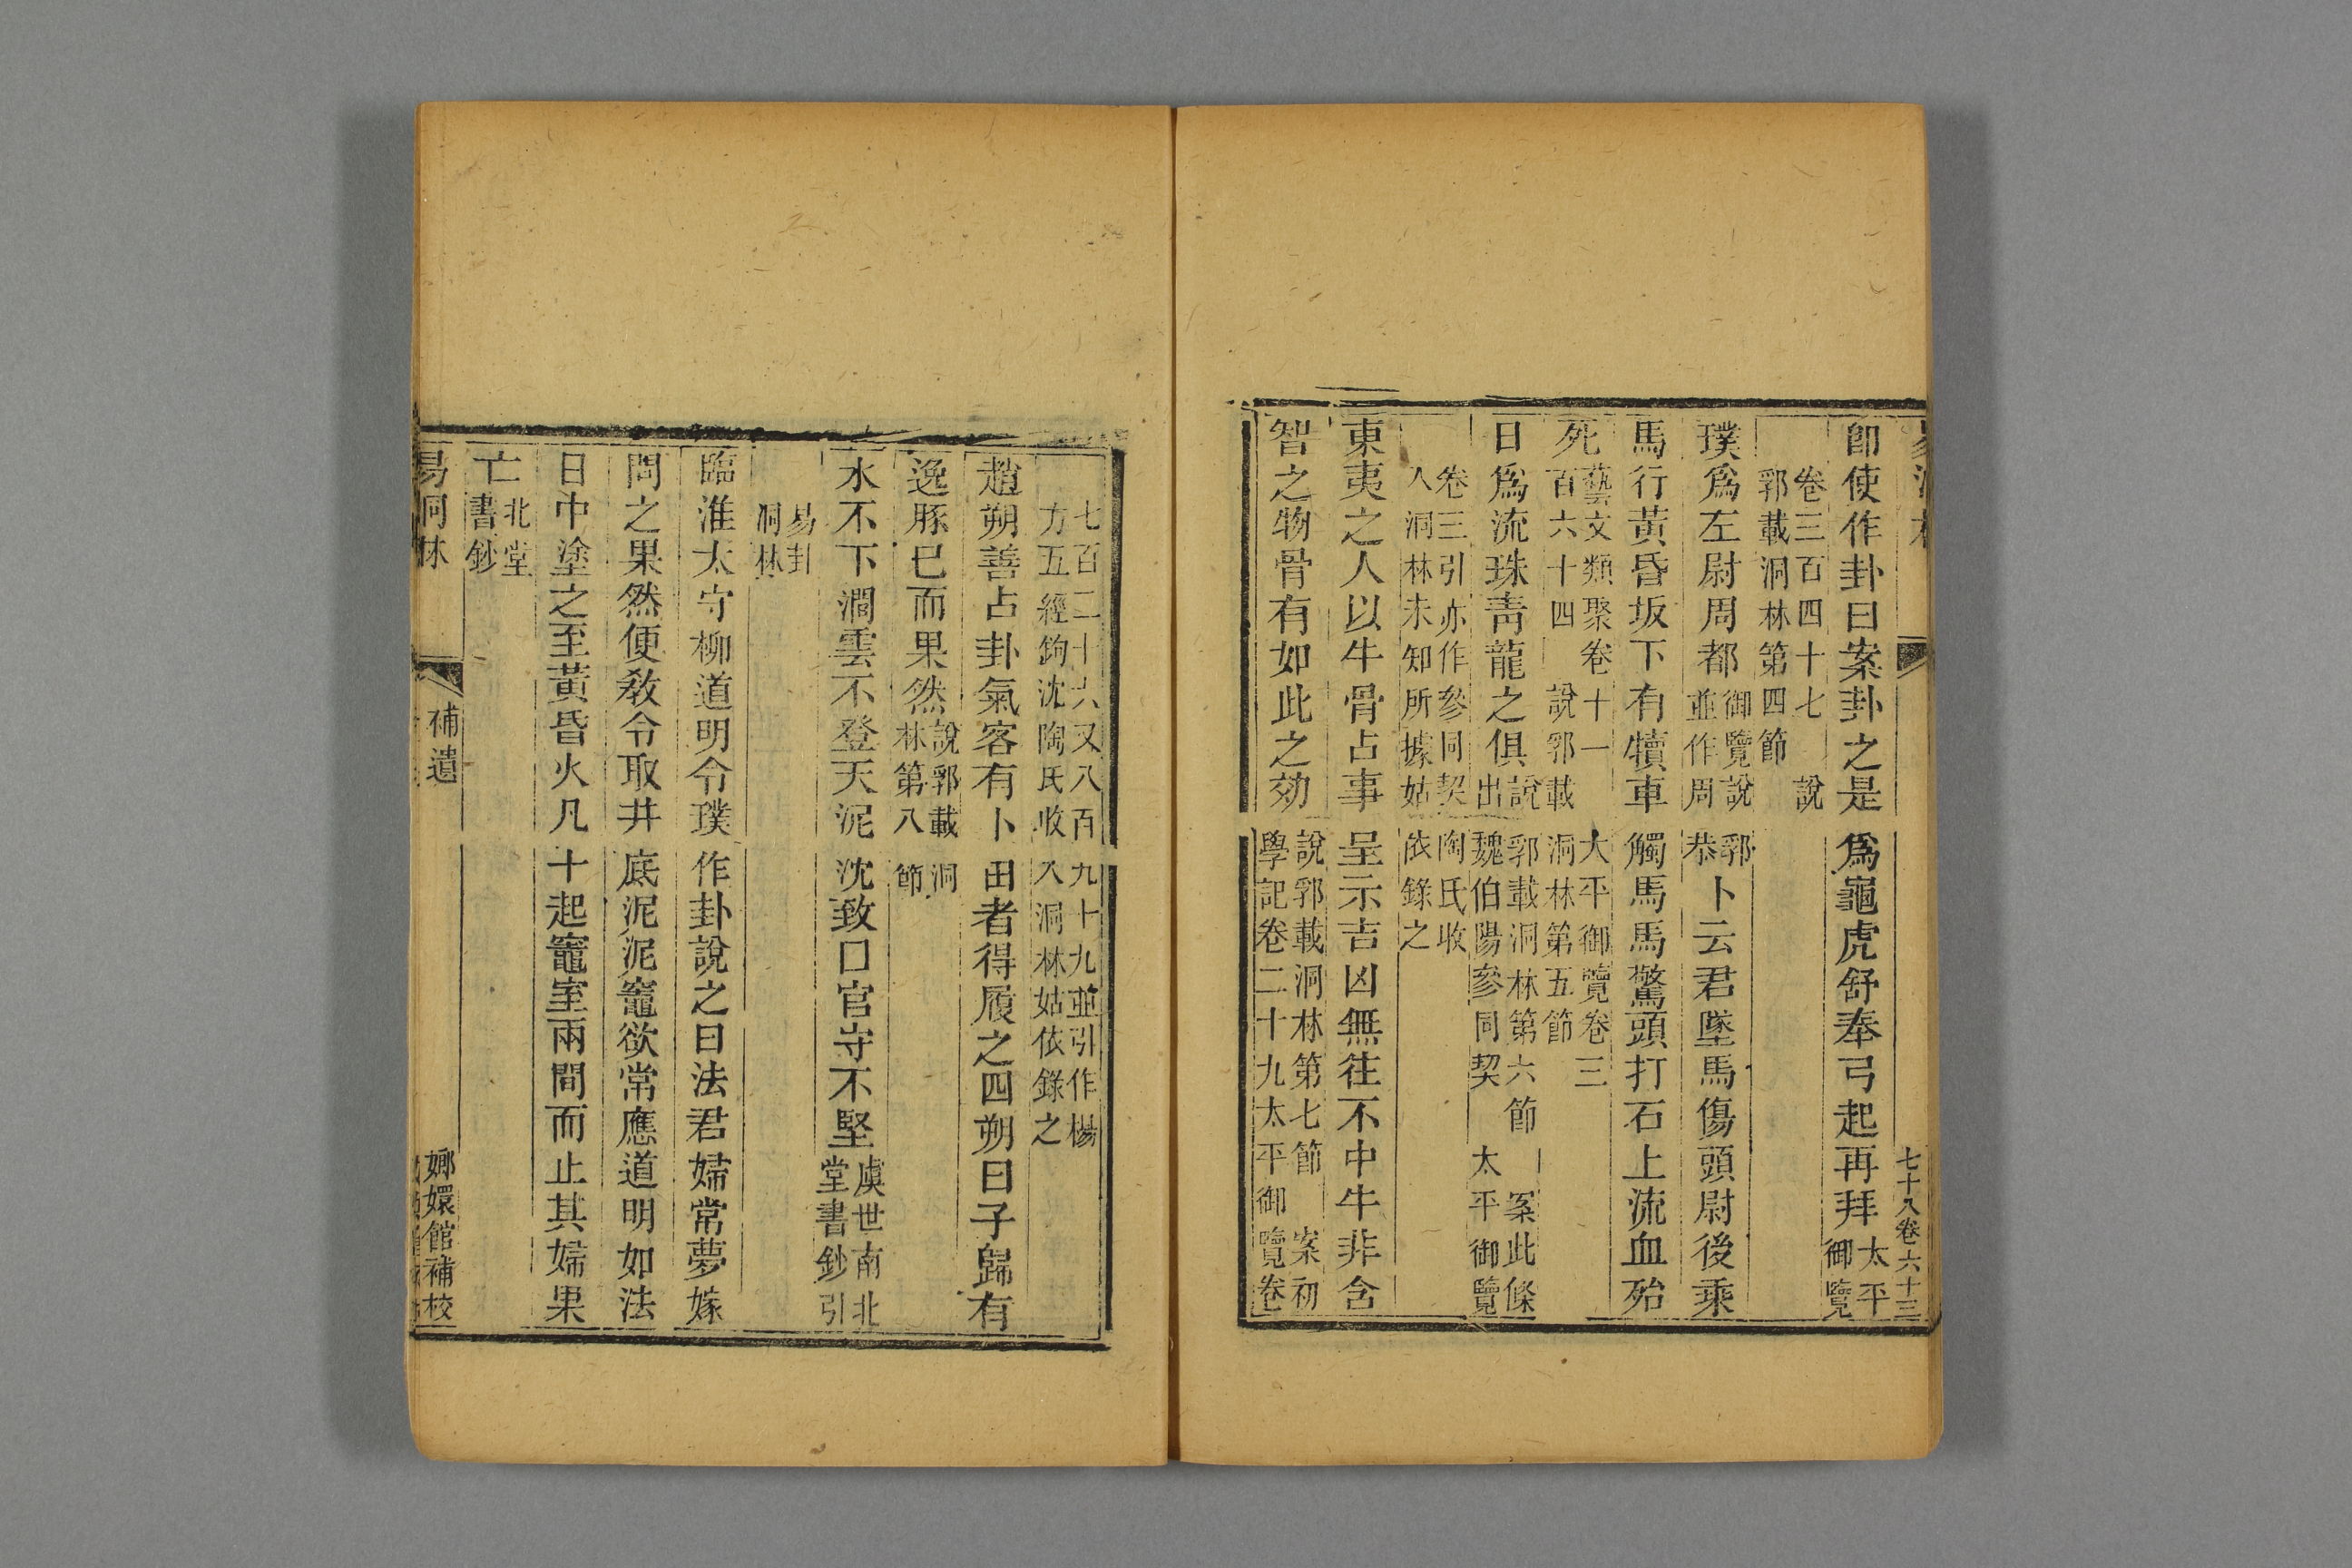 卽使作卦曰案卦之是爲龜虎舒奉弓起再拜太平御覽
卷三百四十七 說郭載洞林第四節
璞爲左尉周都御覽說郛並作周恭卜云君墜馬傷頭尉後乘
馬行黃昏坂下有犢車觸馬馬驚頭打石上流血殆
死藝文類聚卷十一 大平御覽卷三百六十四 說郛載洞林第五節
日爲流珠靑龍之俱說郛載洞林第六節 案此條出魏伯陽參同契 太平御覽
卷三引亦作參同契陶氏收人洞林未知所據姑依錄之
東夷之人以牛骨占事呈示吉凶無往不中牛非含
智之物骨有如此之効說郛載洞林第七節 案初學記卷二十九太平御覽卷
七十八卷六十三
七百二十六又八百九十九並引作楊方五經鉤沈陶氏收入洞林姑依錄之
趙朔善占卦氣客有卜田者得履之四朔曰子歸有
逸豚已而果然說郛載洞林第八節
水不下澗雲不登天泥沈致口官守不堅虞世南北堂書鈔引
易卦洞林
臨淮太守柳道明令璞作卦說之曰法君婦常夢嫁
問之果然便敎令取井底泥泥竈欲常應道明如法
日中塗之至黃昏火凡十起竈室兩間而止其婦果
亡北堂書鈔
易洞林 補遺 嫏嬛館補校